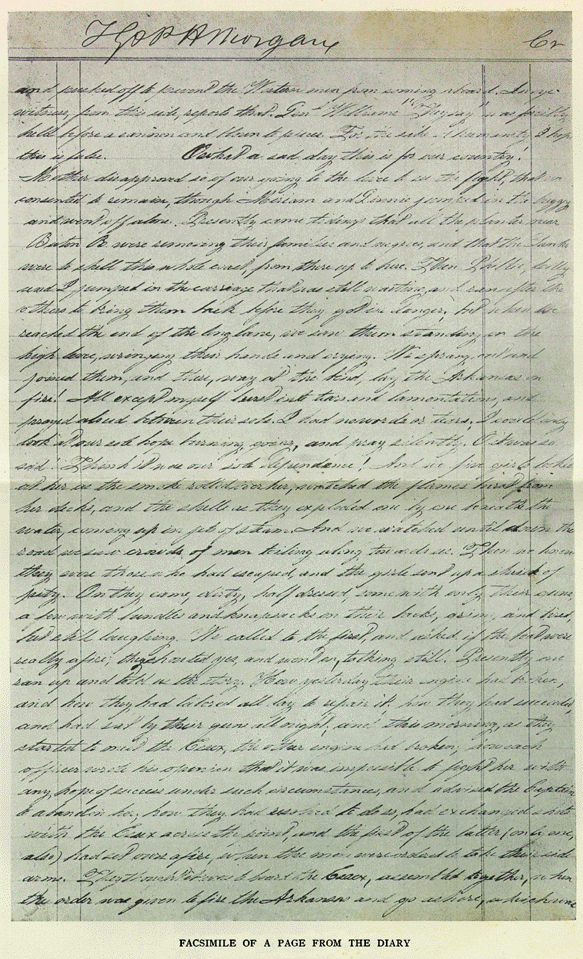 T G & P H Morgan Cr
and pushed off to prevent the Western men from coming aboard. An eye
witness, from this side, reports that Gen Williams was forcibly
held before a cannon and blown to pieces. For the sake of humanity I hope
this is false. O what a sad day this is for our country!
Mother disapproved so of our going to the levee to see the fight, that we
consented to remain, though Miriam and Ginnie jumped in the buggy
and went off alone. Presently came tidings that all the planters near
Baton R were removing their families and negroes, and that the Yankees
were to shell the whole coast, from there up to here. Then Phillie, Lilly
and I jumped in the carriage that was still waiting, and ran after the
others to bring them back before they got in danger; but when we
reached the end of the long lane, we saw them standing on the
high levee, wringing their hands and crying. We sprang out and
joined them, and there, way at the bend, lay the Arkansas on
fire! All except myself burst into tears and lamentations, and
prayed aloud between their sobs. I had no words or tears; I could only
look at our sole hope burning, going, and pray silently. O it was so
sad! Think it was our sole dependence! And we five girls looked
at her as the smoke rolled over her, watched the flames burst from
her decks, and the shells as they exploded one by one beneath the
water, coming up in jets of steam. And we watched until down the
road we saw crowds of men toiling along towards us. Then we knew
they were those who had escaped, and the girls sent up a shriek of
pity. On they came, dirty, half dressed, some with only their guns,
a few with bundles and knapsacks on their backs, grimy and tired,
but still laughing. We called to the first, and asked if the boat were
really afire; they shouted yes, and went on, talking still. Presently one
ran up and told us the story. How yesterday their engine had broken,
and how they had labored all day to repair it, how they had succeeded,
and had sat by their guns all night; and this morning, as they
started to meet the Essex, the other engine had broken; how each
officer wrote his opinion that it was impossible to fight her with
any hope of success under such circumstances, and advised the Captain
to abandon her; how they had resolved to do so, had exchanged shots
with the Essex across the point, and the first of the latter (only one,
also) had set ours afire, when the men were ordered to take their side
arms. They thought it was to board the Essex, assembled together, when
the order was given to fire the Arkansas and go ashore, which was
FACSIMILE OF A PAGE FROM THE DIARY